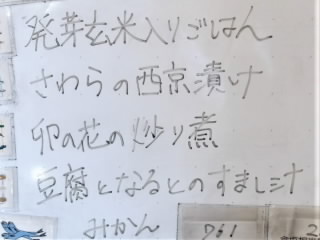 発芽玄米入りごはん
さわらの西京漬け
卯の花の炒り煮
豆腐となるとのすまし汁
みかん 761 2